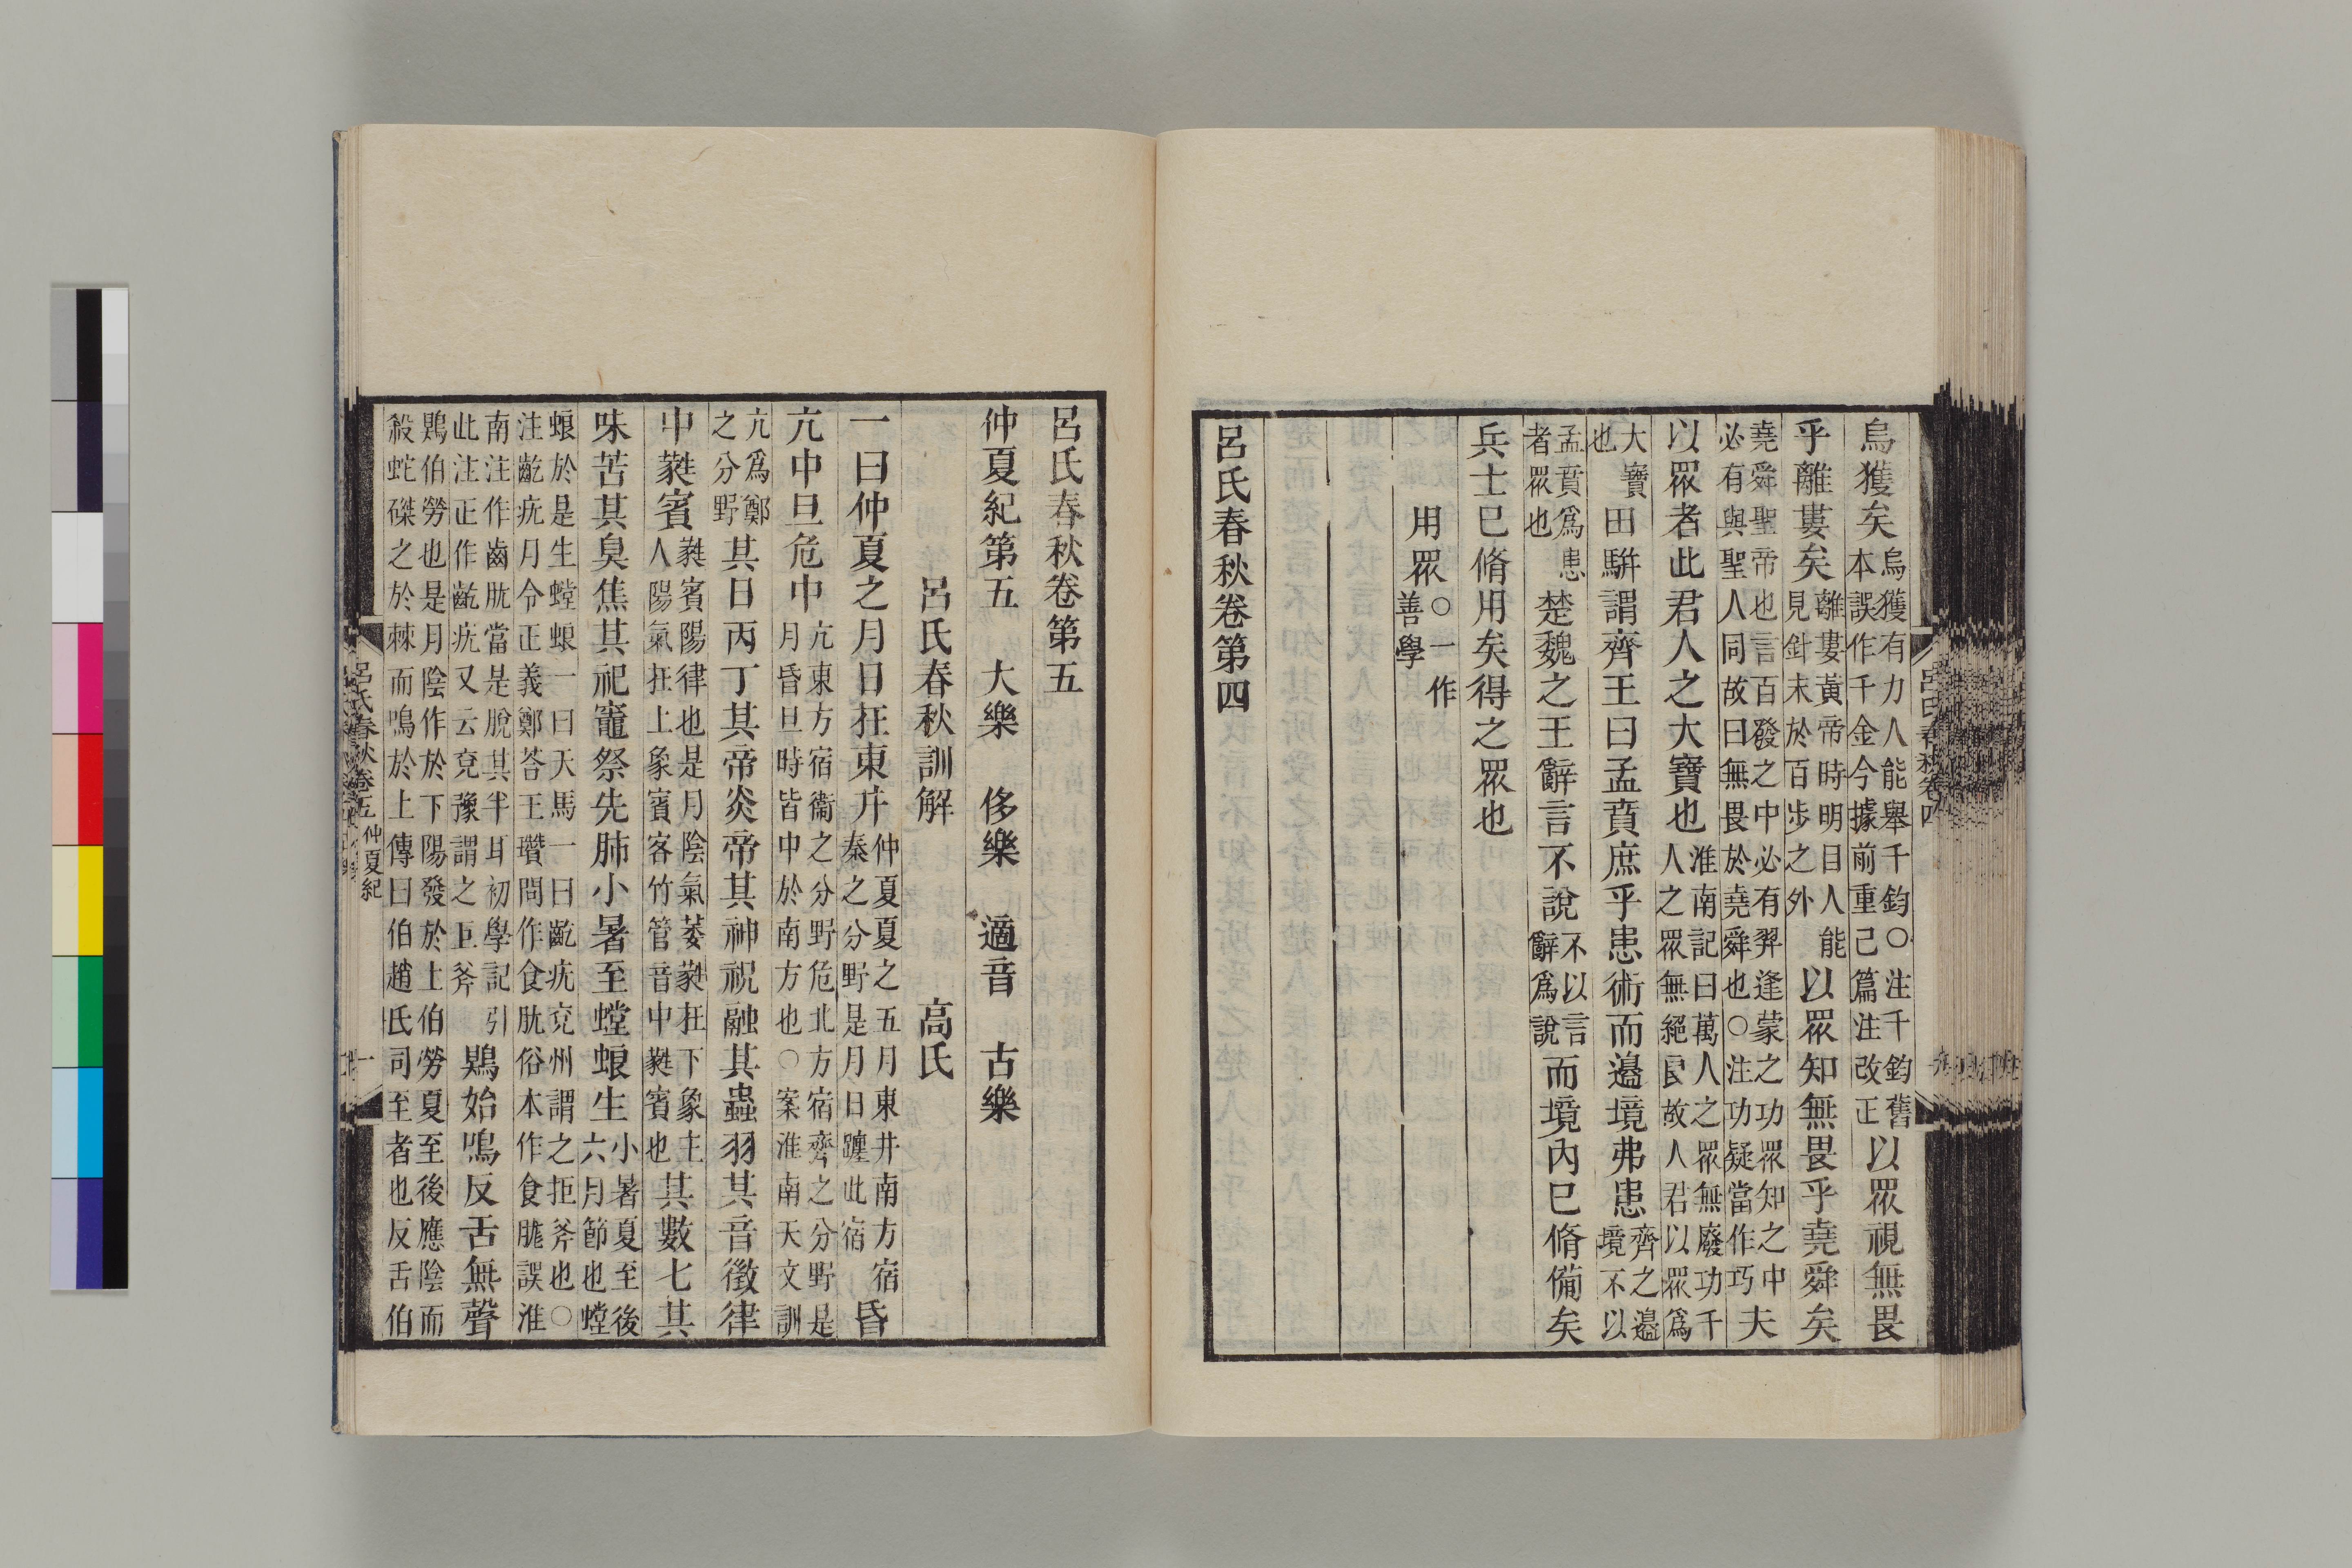 烏獲矣烏獲有力人能舉千鈞〇注千鈞舊本誤作千金今據前重己篇注改正以眾視無畏
乎離婁矣離婁黃帝時明目人能見針末於百步之外以眾知無畏乎堯舜矣
堯舜聖帝也言百發之中必有羿逢蒙之功眾知之中必有與聖人同故曰無畏於堯舜也〇注功疑當作巧夫
以眾者此君人之大寶也淮南記曰萬人之眾無廢功千人之眾無絕良故人君以眾爲
大寶也田駢謂齊王曰孟賁庶乎患術而邊境弗患齊之邊境不以
孟賁爲患者眾也楚魏之王辭言不說不以言辭爲說而境內已脩備矣
兵士已脩用矣得之眾也
用眾〇一作善學
呂氏春秋卷第四
呂氏春秋卷四
呂氏春秋卷第五
仲夏紀第五 大樂 侈樂 適音 古樂
呂氏春秋訓解 高氏
一曰仲夏之月日在東井仲夏夏之五月東井南方宿秦之分野是月日躔此宿昏
亢中旦危中亢東方宿衞之分野危北方宿齊之分野是月昏旦時皆中於南方也〇案淮南天文訓
亢爲鄭之分野其日丙丁其帝炎帝其神祝融其蟲羽其音徵律
中蕤賓蕤賓陽律也是月陰氣萎蕤在下象主人陽氣在上象賓客竹管音中蕤賓也其數七其
味苦其臭焦其祀竈祭先肺小暑至螳蜋生小暑夏至後六月節也螳
蜋於是生螳蜋一曰天馬一曰齕疣兗州謂之拒斧也〇注齕疣月令正義鄭荅王瓚問作食肬俗本作食胧誤淮
南注作齒肬當是脫其半耳初學記引此注正作齕疣又云兗豫謂之巨斧鶪始鳴反舌無聲
鶪伯勞也是月陰作於下陽發於上伯勞夏至後應陰而殺蛇磔之於棘而鳴於上傳曰伯趙氏司至者也反舌伯
呂氏春秋卷五 仲夏紀 一